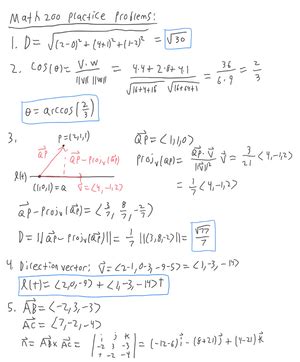 Math 200 practice problems:
1. D = √((2-0)² + (4+1)² + (1-2)²) = √30
2. cos(θ) = V·W / ||V|| ||W|| = 4·4+2·8+4·1 / √16+4+16 √16+64+1 = 36 / 6·9 = 2/3
θ = arccos(2/3)
3.
P=(2,1,1)
QP
QP - Proj_v(QP)
l(t)
(1,0,1)=Q
V=<4,-1,2>
QP = <1,1,0>
Proj_v(QP) = QP·V / ||V||² V = 3/21 <4,-1,2>
= 1/7 <4,-1,2>
QP - Proj_v(QP) = <3/7, 8/7, -2/7>
D = ||QP - Proj_v(QP)|| = 1/7 ||<3,8,-2>|| = √77/7
4. Direction vector: V = <2-1, 0-3, -9-5> = <1,-3,-14>
l(t) = <2,0,-9> + <1,-3,-14>t
5. AB = <-2,3,-3>
AC = <7,-2,-4>
n = AB × AC = | i j k -2 3 -3 7 -2 -4 | = (-12-6)i - (8+21)j + (4-21)k